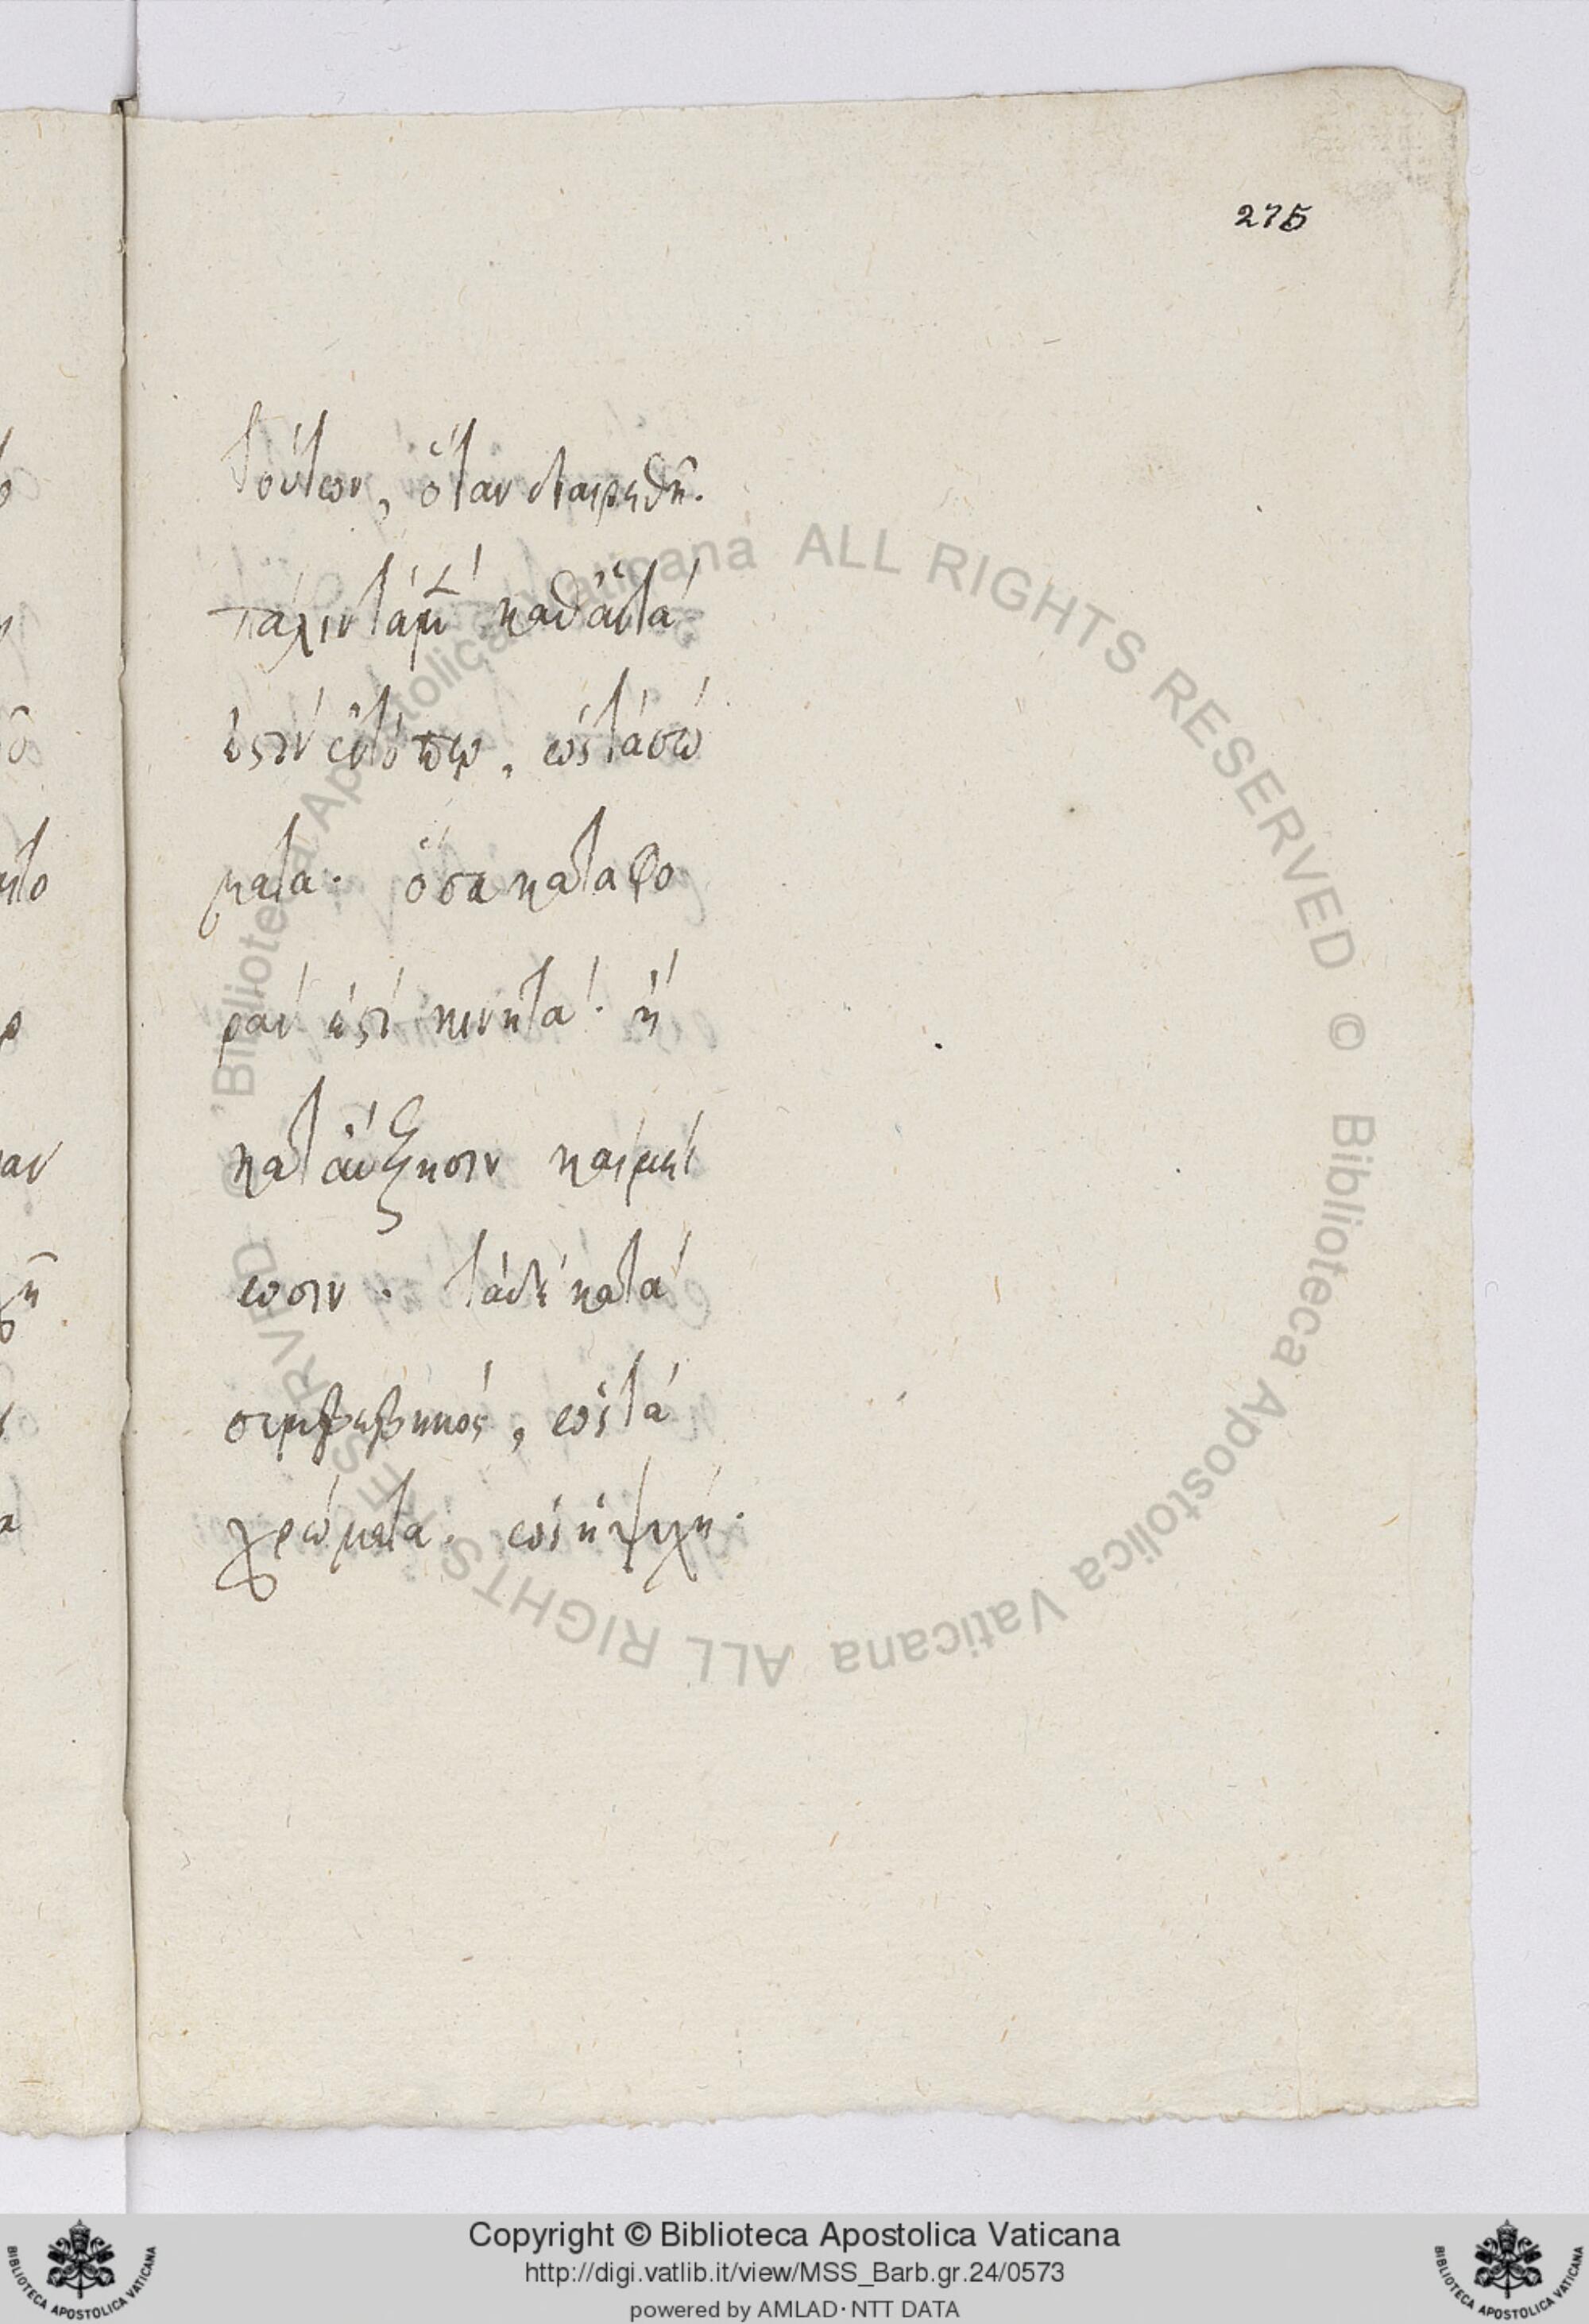 275
τούτων, ὅταν διαιρεθῆ.
πάλιν τὰ μ̃ καθ' αὑτά
ἐστὶν ἐν τόπῳ, ὡς τὰ σώ
ματα. ὅσα κατὰ φο
ρὰν ἐστὶ κινητά. ἢ
κατ' αὔξησιν καὶ μεί
ωσιν. τὰ δὲ κατὰ
συμβεβηκός, ὡς τὰ
χρώματα. ὡς ἡ ψυχή.
Copyright © Biblioteca Apostolica Vaticana
http://digi.vatlib.it/view/MSS_Barb.gr.24/0573
powered by AMLAD·NTT DATA
BIBLIOTECA APOSTOLICA VATICANA
BIBLIOTECA APOSTOLICA VATICANA
© Biblioteca Apostolica Vaticana ALL RIGHTS RESERVED © Biblioteca Apostolica Vaticana ALL RIGHTS RESERVED